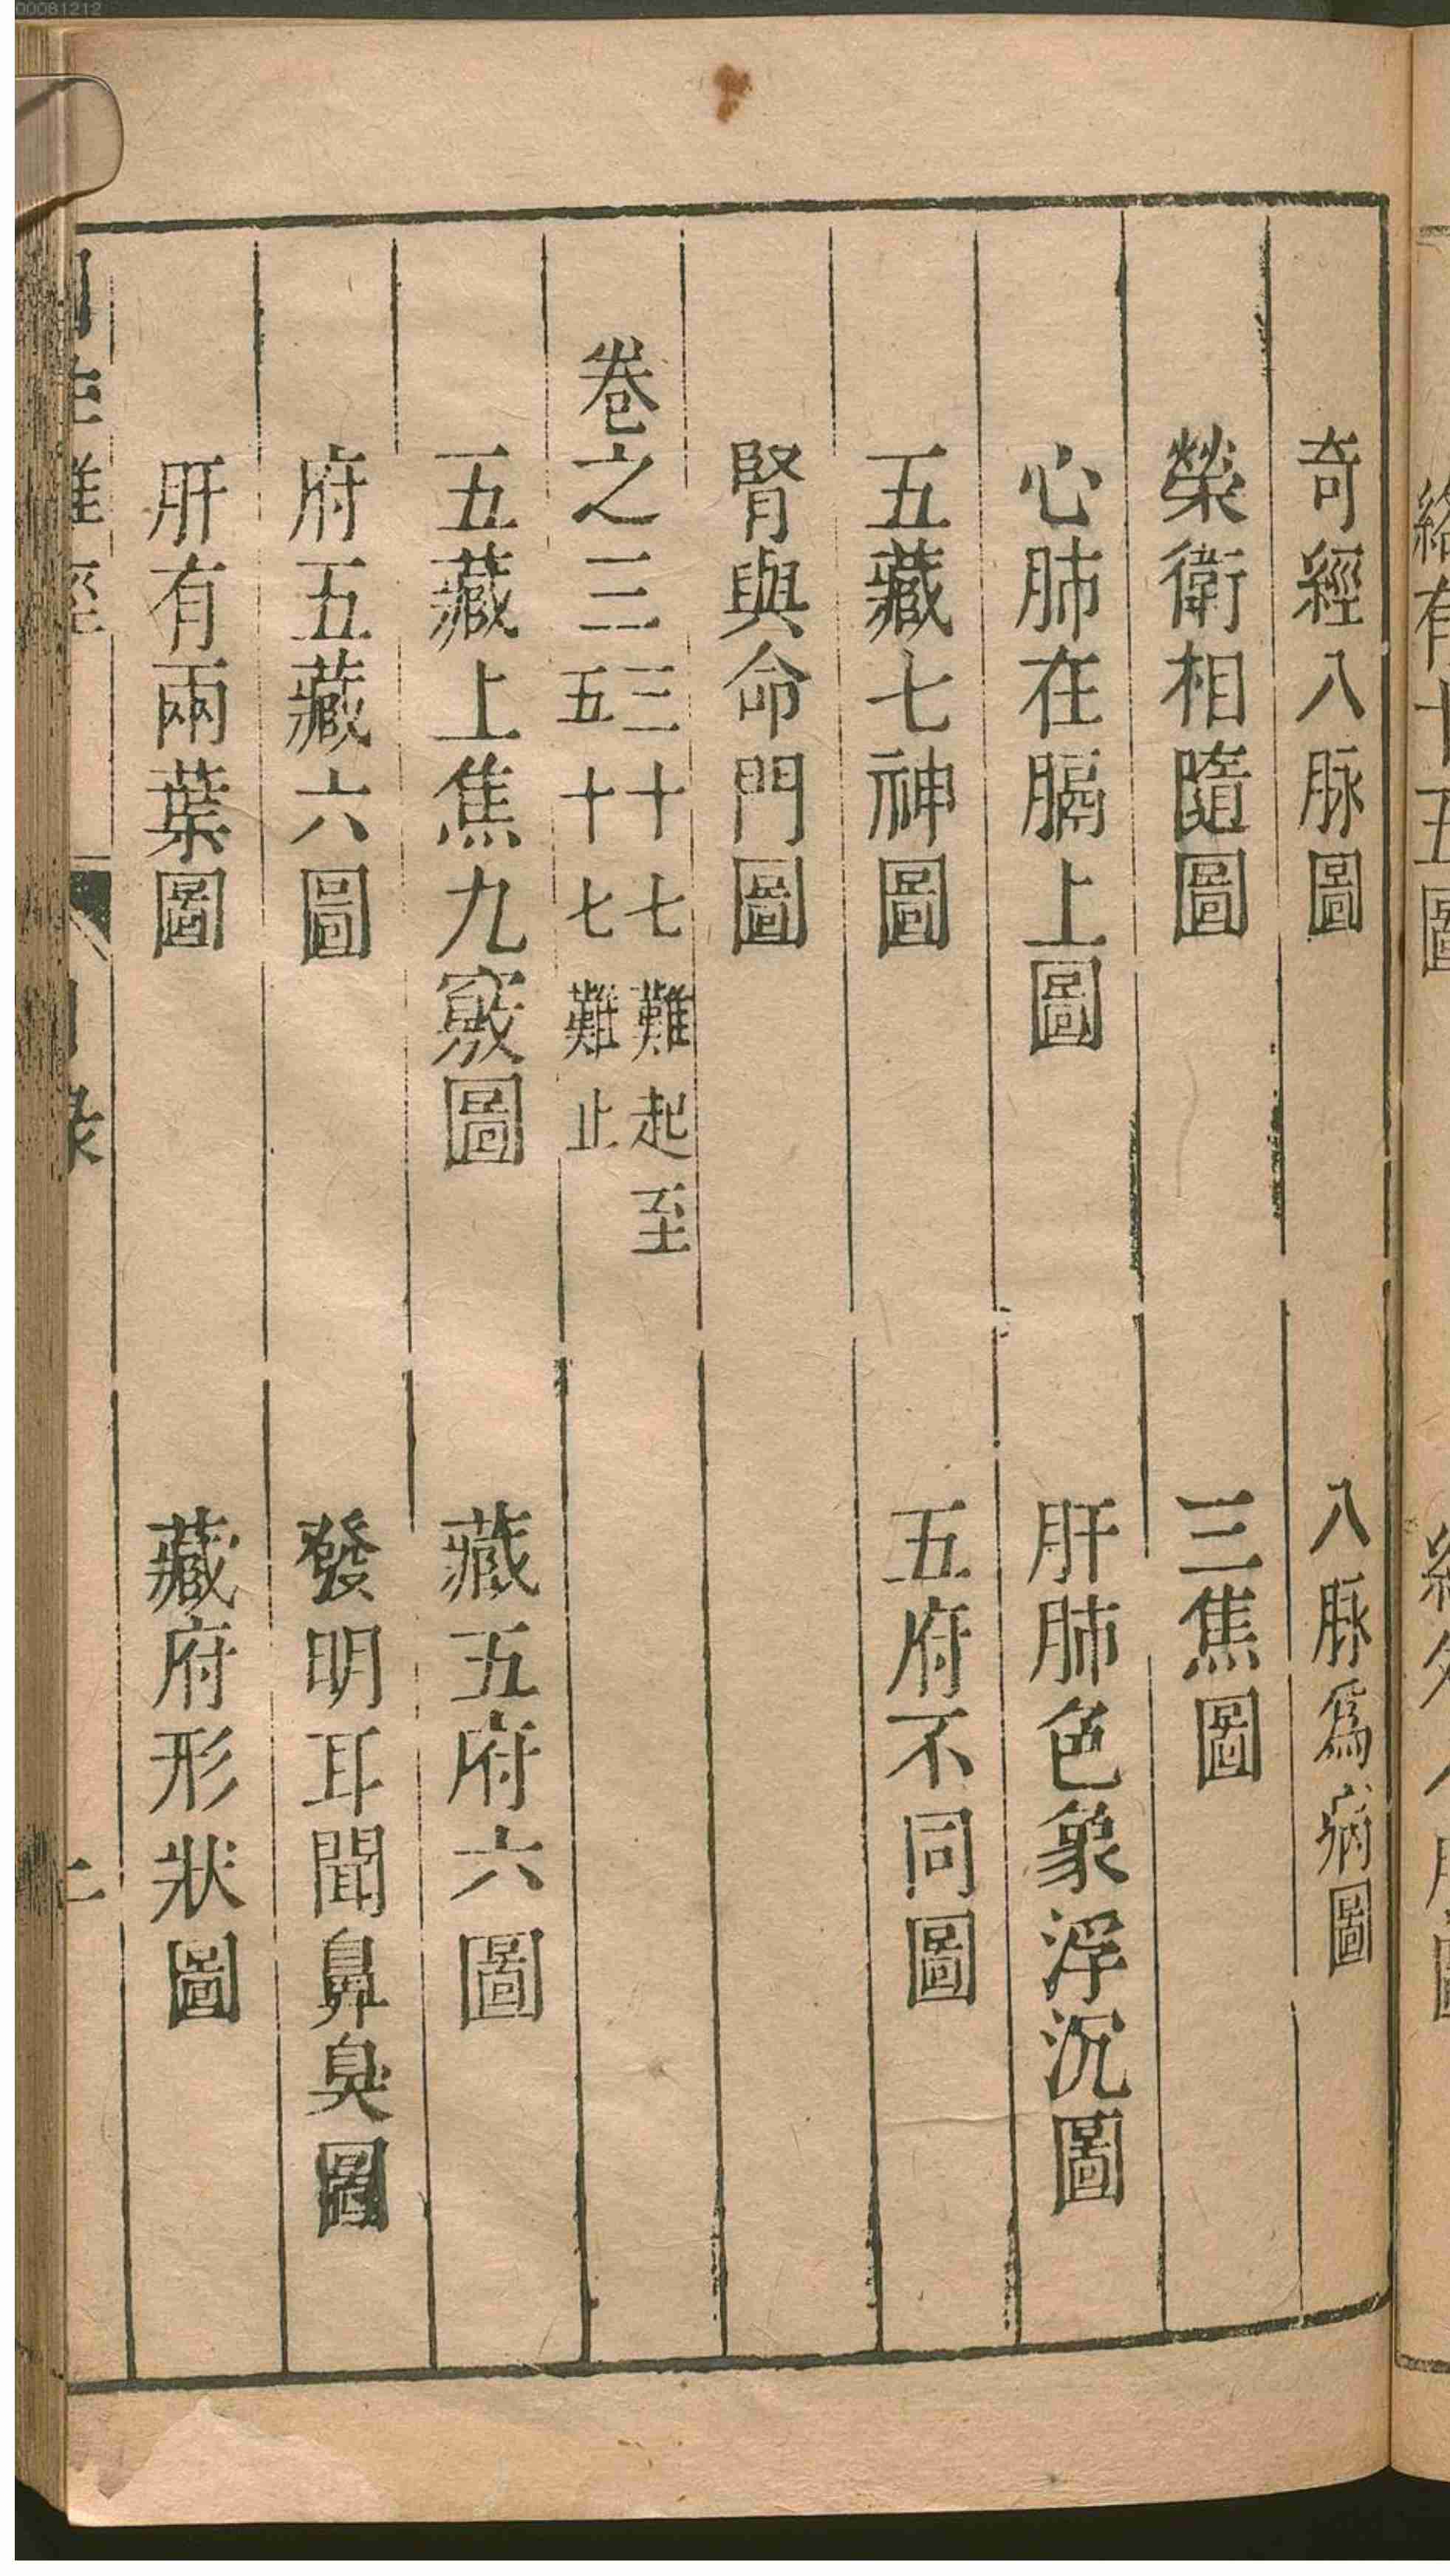 00081212
絡有十五圖
奇經八脉圖　八脉爲病圖
榮衛相隨圖　三焦圖
心肺在膈上圖　肝肺色象浮沉圖
五藏七神圖　五府不同圖
腎與命門圖
卷之三 三十七難起至
五十七難止
五藏上焦九竅圖　藏五府六圖
府五藏六圖　發明耳聞鼻臭圖
肝有兩葉圖　藏府形狀圖
難經